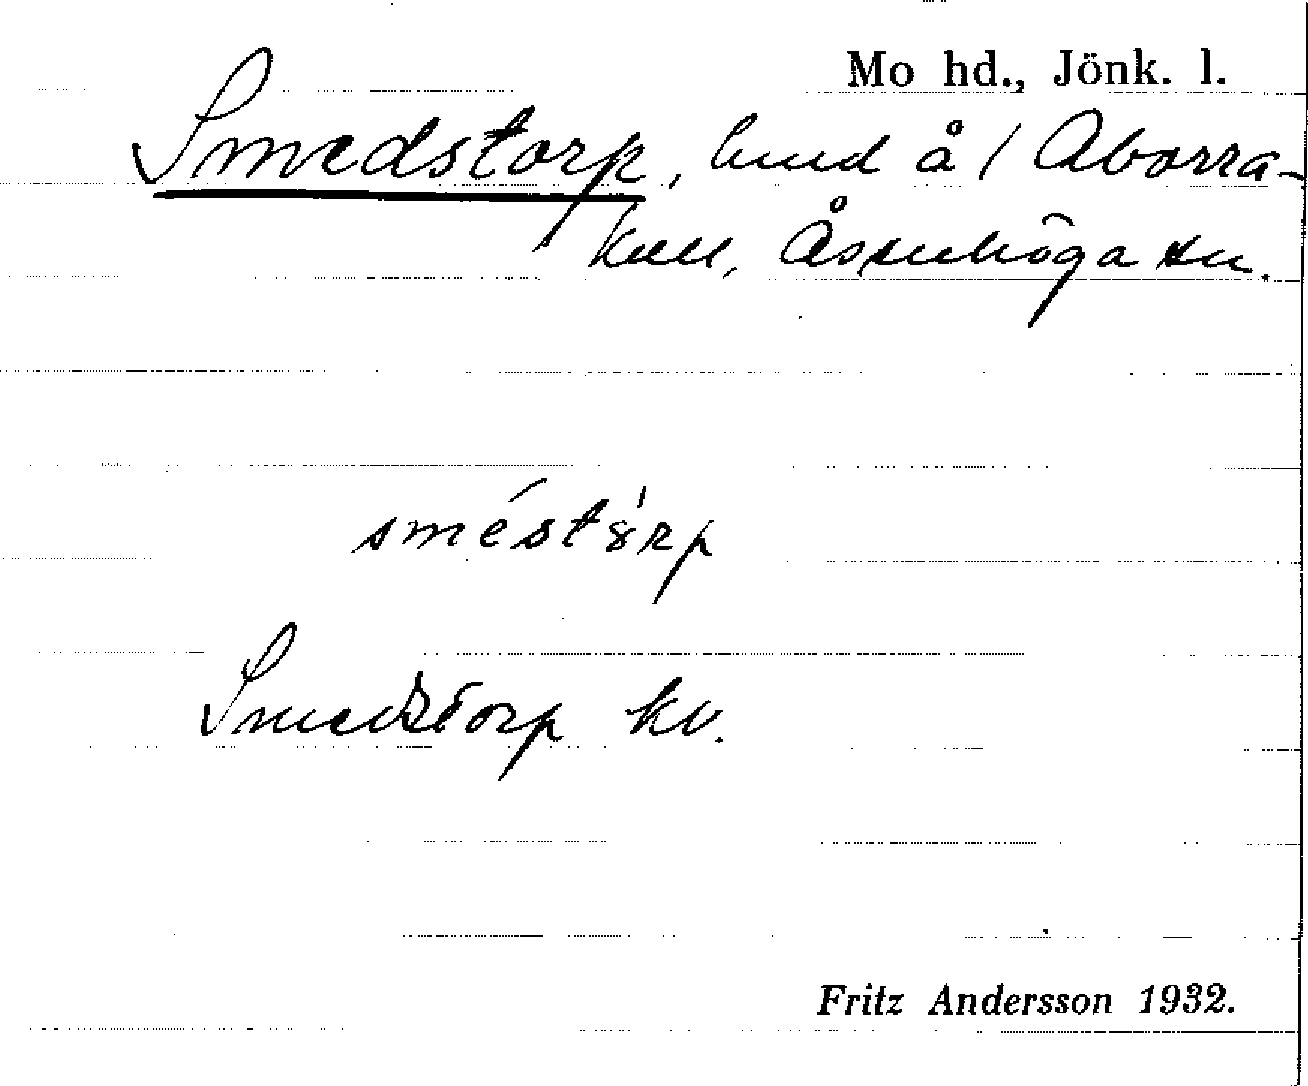 Mo hd., Jönk. l.
Smedstorp, lund å / Aborra-
kull, Åsenhöga sn.
sméstȣ́rp
Smedstorp kv.
Fritz Andersson 1932.